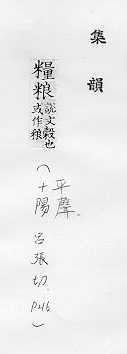 集韻
糧粮說文穀也或作粮
（平聲
十陽
呂張切
P216）